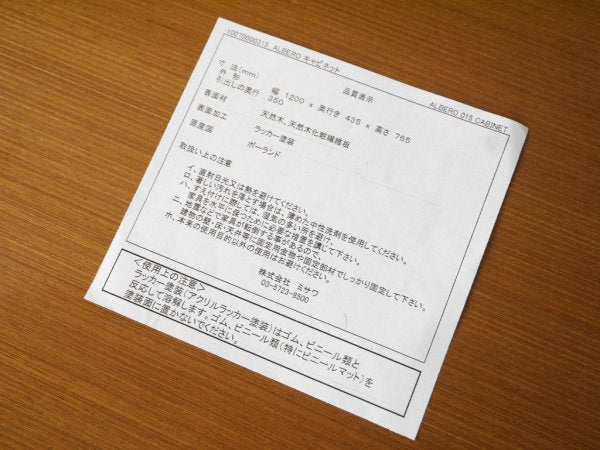 10070000315 ALBERO キャビネット
ALBERO 015 CABINET
品質表示
寸 法(mm)
外 形 幅 1200 × 奥行き 435 × 高さ 765
引出しの奥行 350
表面材 天然木、天然木化粧繊維板
表面加工 ラッカー塗装
原産国 ポーランド
取扱い上の注意
イ、直射日光又は熱を避けてください。
ロ、著しい汚れを落とす場合は、薄めた中性洗剤を使用してください。
ハ、すえ付けに際しては、湿気の多い所を避け、
家具を水平に保つために必要な措置を講じて下さい。
ニ、地震などで家具が転倒する事があるので、
建物の壁・床・天井等に固定用金物や固定部材でしっかり固定して下さい。
ホ、本来の使用目的以外の使用はお避けください。
株式会社 ミサワ
03-5723-8500
<使用上の注意>
ラッカー塗装(アクリルラッカー塗装)はゴム、ビニール類と
反応して溶解します。ゴム、ビニール類(特にビニールマット)を
塗装面に置かないでください。